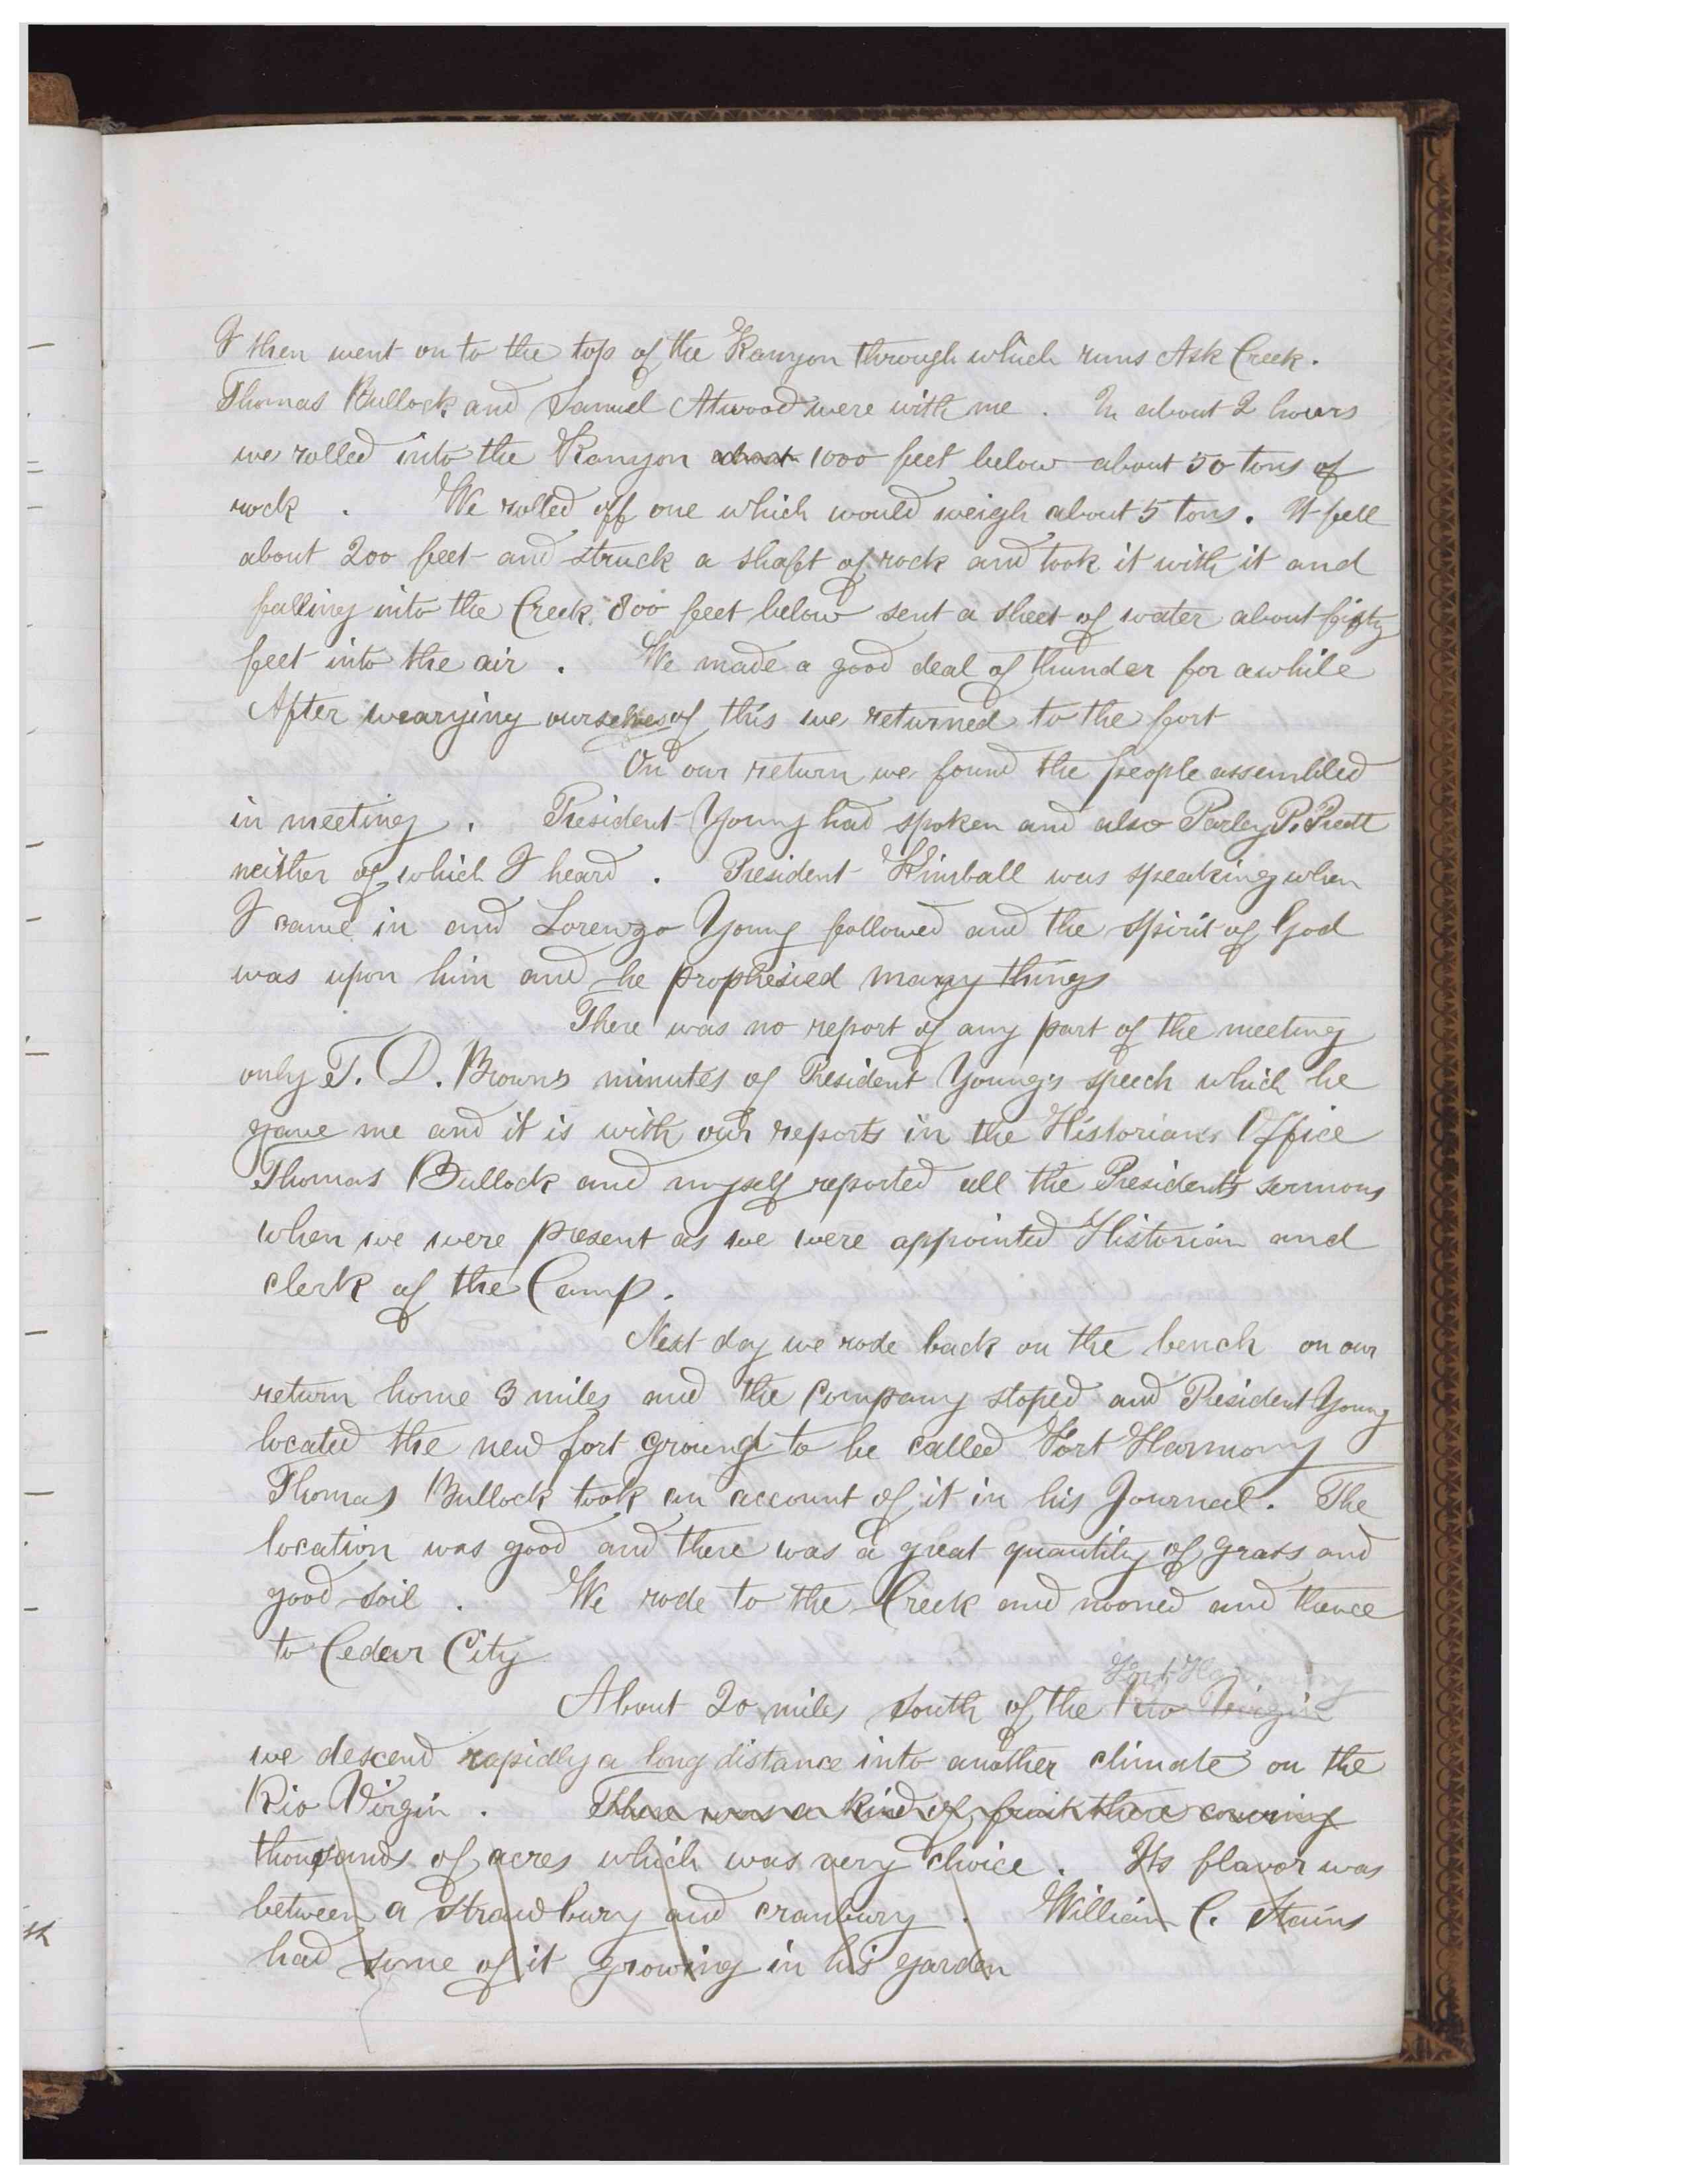 I then went on to the top of the Kanyon through which runs Ask Creek.
Thomas Bullock and Samuel Atwood were with me . In about 2 hours
we rolled into the Kanyon about 1000 feet below about 50 tons of
rock . We rolled off one which would weigh about 5 tons. It fell
about 200 feet and struck a shaft of rock and took it with it and
falling into the Creek 800 feet below sent a sheet of water about fifty
feet into the air . We made a good deal of thunder for awhile
After wearying ourselves of this we returned to the fort
On our return we found the people assembled
in meeting . President Young had spoken and also Parley P. Pratt
neither of which I heard . President Kimball was speaking when
I came in and Lorenzo Young followed and the spirit of God
was upon him and he prophesied many things
There was no report of any part of the meeting
only T. D. Browns minutes of President Young's speech which he
gave me and it is with our reports in the Historians Office
Thomas Bullock and myself reported all the Presidents sermons
when we were present as we were appointed Historian and
clerk of the Camp.
Next day we rode back on the bench on our
return home 3 miles and the company stoped and President Young
located the new fort ground to be called Fort Harmony
Thomas Bullock took an account of it in his Journal. The
location was good and there was a great quantity of grass and
good soil . We rode to the Creek and nooned and thence
to Cedar City
Fort Harmony
About 20 miles south of the Rio Virgin
we descend rapidly a long distance into another climate on the
Rio Virgin . There was a kind of fruit there covering
thousands of acres which was very choice . Its flavor was
between a strawbury and cranbury . William C. Stains
had some of it growing in his garden